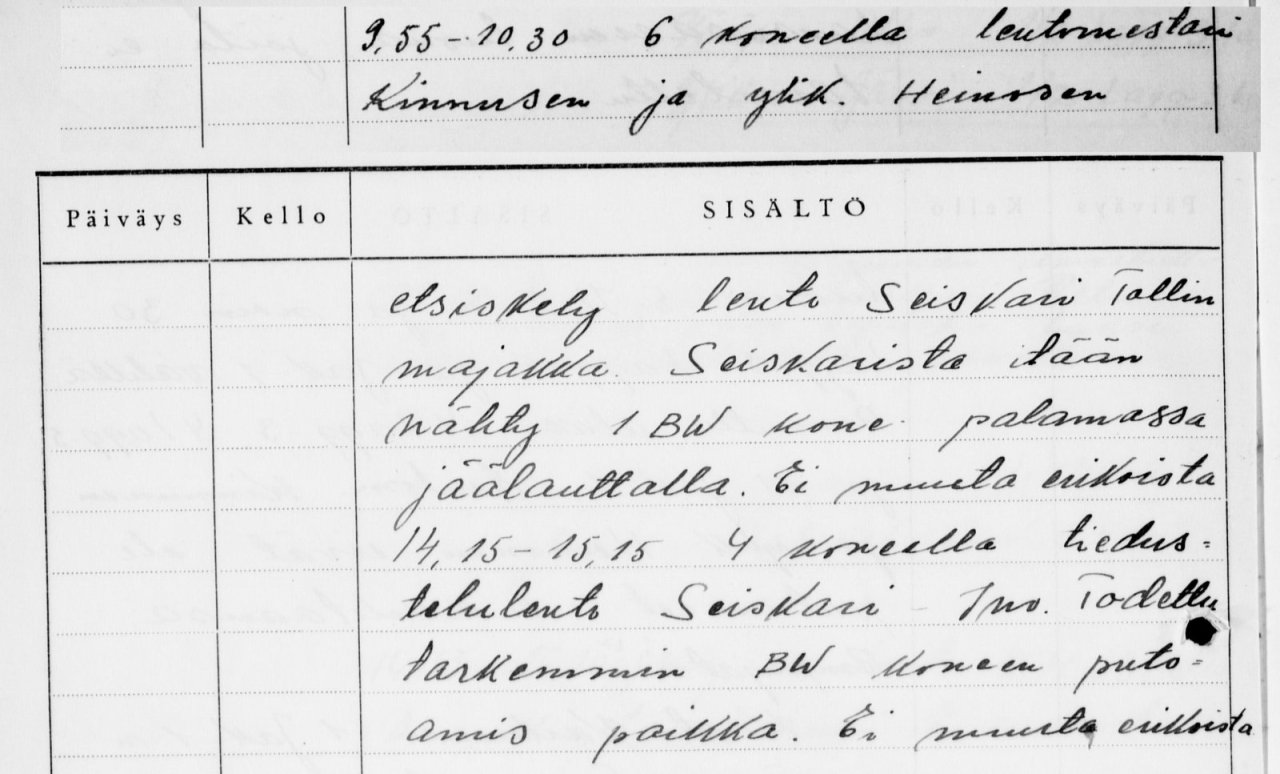 9,55-10,30 6 koneella lentomestari
Kinnusen ja ylik. Heinosen
Päiväys Kello SISÄLTÖ
etsiskely lento Seiskari Tallin
majakka. Seiskarista itään
nähty 1 BW kone palamassa
jäälauttalla. Ei muuta erikoista
14,15-15,15 4 koneella tiedus=
telulento Seiskari - Ino. Todettu
tarkemmin BW koneen puto=
amis paikka. Ei muuta erikoista